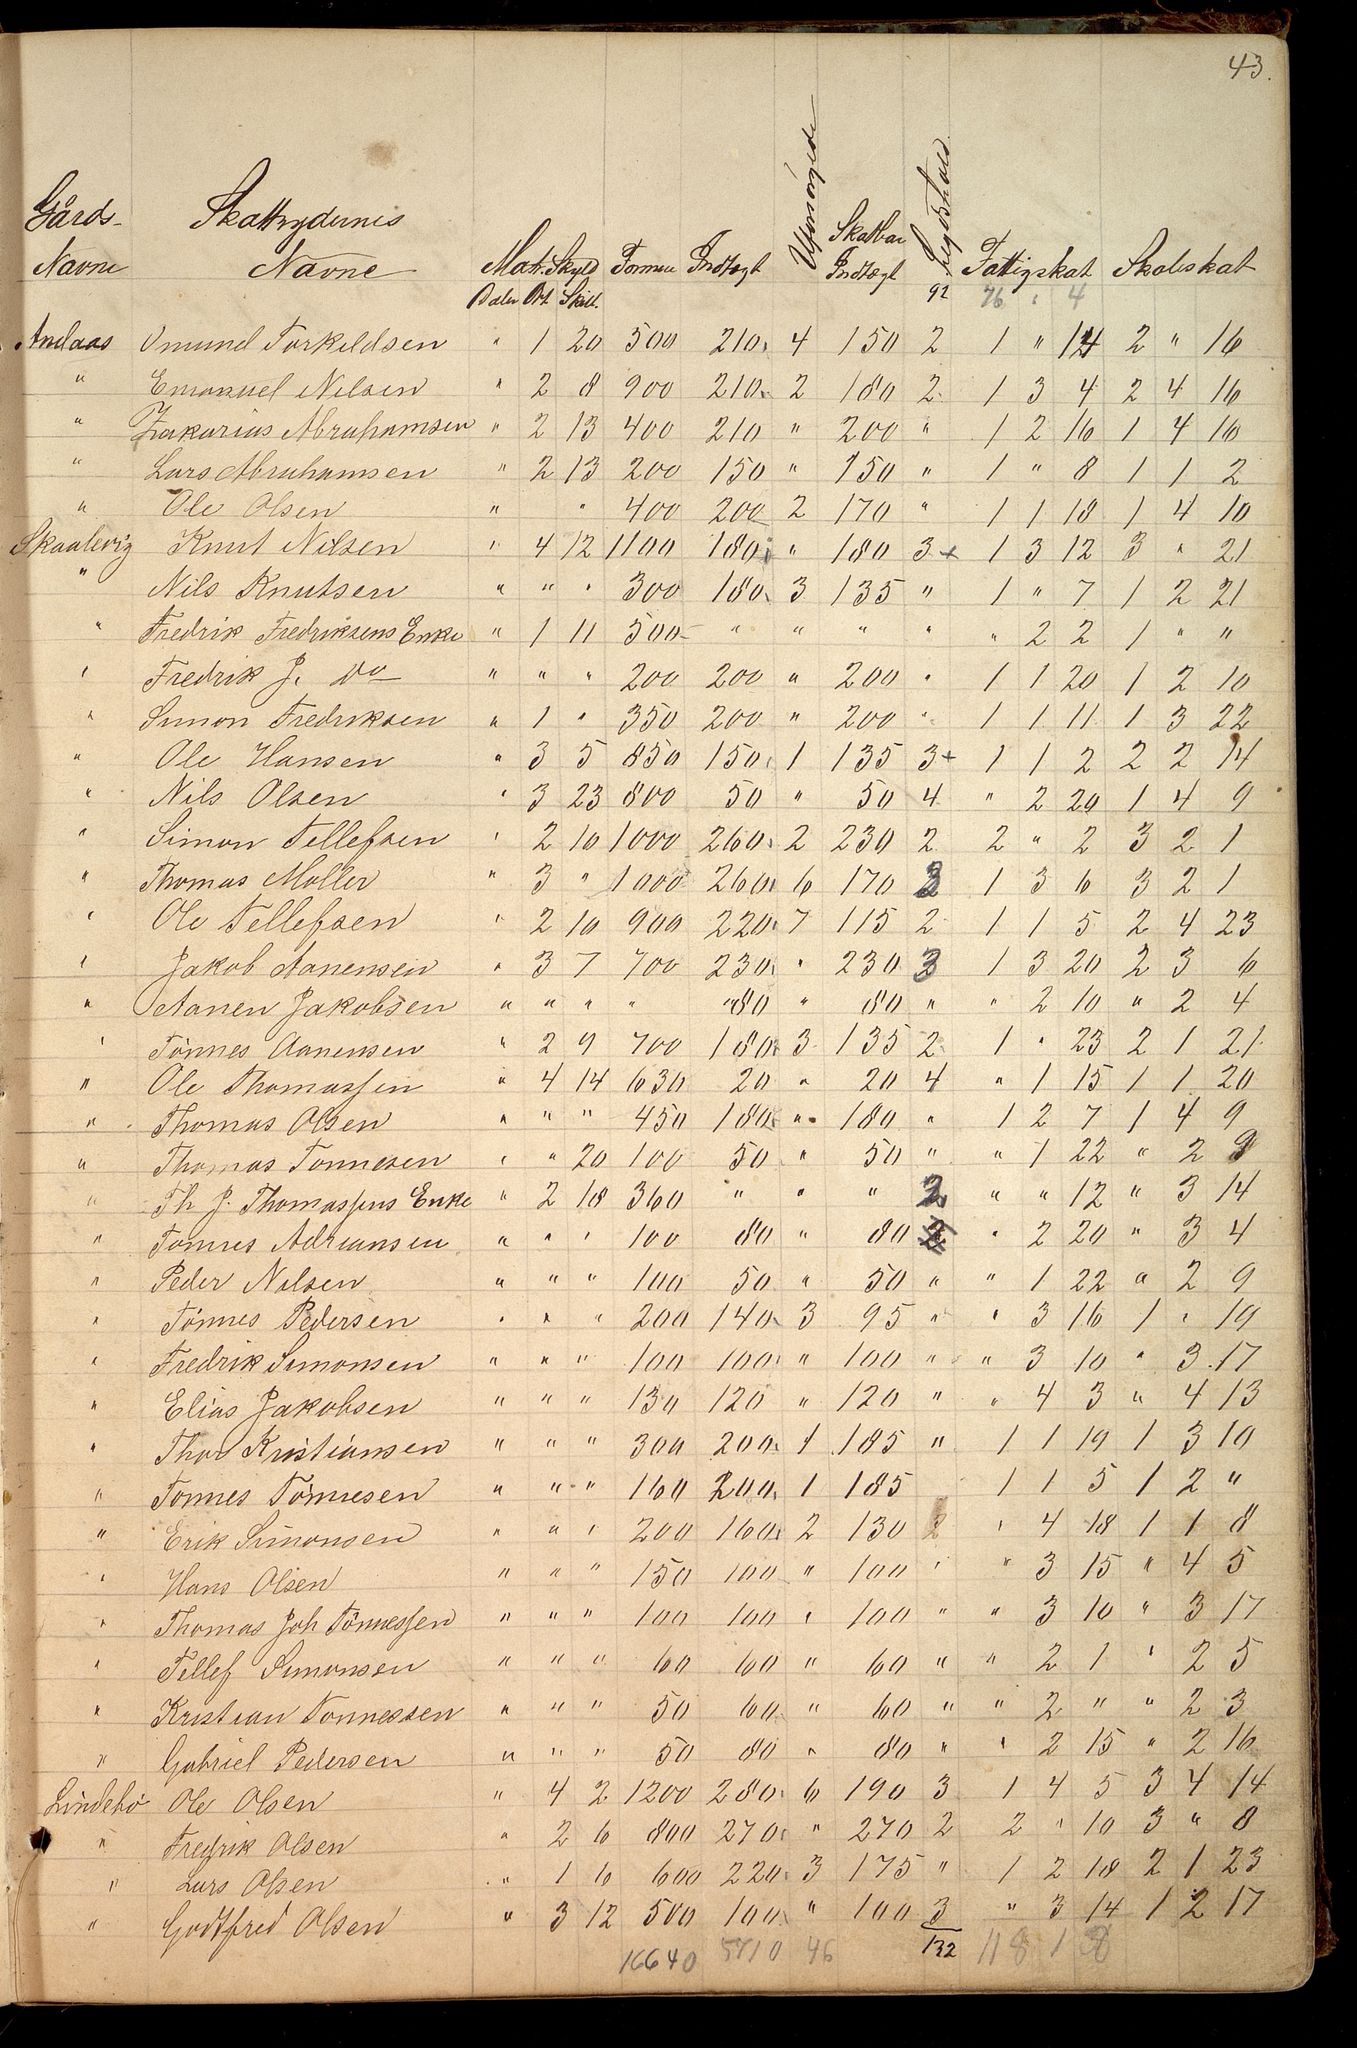 43.
Gårds- Navne Skatteydernes Navne Mat. Skyld Formue Indtægt Uforsörgede Skatbar Indtægt Lægdshold Fattigskat Skoleskat
Daler Ort Skill. 92 76 " 4
Andaas Omund Torkildsen " 1 20 500 210 4 150 2 1 " 14 2 " 16
" Emanuel Nilsen " 2 8 900 210 2 180 2 1 3 4 2 4 16
" Zakarias Abrahamsen " 2 13 400 210 " 200 " 1 2 16 1 4 16
" Lars Abrahamsen " 2 13 200 150 " 150 " 1 " 8 1 1 2
" Ole Olsen " " 400 200 2 170 " 1 1 18 1 4 10
Skaalevig Knut Nilsen " 4 12 1100 180 " 180 3+ 1 3 12 3 " 21
" Nils Knutsen " " " 300 180 3 135 " 1 " 7 1 2 21
" Fredrik Fredriksens Enke " 1 11 500 " " " " " 2 2 1 " "
" Fredrik J. Do " " " 200 200 " 200 " 1 1 20 1 2 10
" Simon Fredriksen " 1 " 350 200 " 200 " 1 1 11 1 3 22
" Ole Hansen " 3 5 850 150 1 135 3+ 1 1 2 2 2 14
" Nils Olsen " 3 23 800 50 " 50 4 " 2 20 1 4 9
" Simon Tellefsen " 2 10 1000 260 2 230 2 2 " 2 3 2 1
" Thomas Møller " 3 " 1000 260 6 170 3 1 3 6 3 2 1
" Ole Tellefsen " 2 10 900 220 7 115 2 1 1 5 2 4 23
" Jakob Aanensen " 3 7 700 230 " 230 3 1 3 20 2 3 6
" Aanen Jakobsen " " " " 80 " 80 " " 2 10 " 2 4
" Tönnes Aanensen " 2 9 700 180 3 135 2 1 " 23 2 1 21
" Ole Thomassen " 4 14 630 20 " 20 4 " 1 15 1 1 20
" Thomas Olsen " " " 450 180 " 180 " 1 2 7 1 4 9
" Thomas Tönnesen " " 20 100 50 " 50 " " 1 22 " 2 9
" Th J. Thomassens Enke " 2 18 360 " " " 2 " " 12 " 3 14
" Tönnes Adriansen " " " 100 80 " 80 2 " 2 20 " 3 4
" Peder Nilsen " " " 100 50 " 50 " " 1 22 " 2 9
" Tönnes Pedersen " " " 200 140 3 95 " " 3 16 1 " 19
" Fredrik Simonsen " " " 100 100 " 100 " " 3 10 " 3 17
" Elias Jakobsen " " " 130 120 " 120 " " 4 3 " 4 13
" Thor Kristiansen " " " 300 200 1 185 " 1 1 19 1 3 10
" Tönnes Tönnesen " " " 160 200 1 185 1 1 5 1 2 "
" Erik Simonsen " " " 200 160 2 130 2 " 4 18 1 1 8
" Hans Olsen " " " 150 100 " 100 " " 3 15 " 4 5
" Thomas Joh Tönnessen " " " 100 100 " 100 " " 3 10 " 3 17
" Tellef Simonsen " " " 60 60 " 60 " " 2 1 " 2 5
" Kristian Tonnessen " " " 50 60 " 60 " " 2 " " 2 3
" Gabriel Pedersen " " " 50 80 " 80 " " 2 15 " 2 16
Lindebö Ole Olsen " 4 2 1200 280 6 190 3 1 4 5 3 4 14
" Fredrik Olsen " 2 6 800 270 " 270 2 2 " 10 3 " 8
" Lars Olsen " 1 6 600 220 3 175 " 1 2 18 2 1 23
" Godtfred Olsen " 3 12 500 100 " 100 3 " 3 14 1 2 17
16640 5710 46 132 118 1